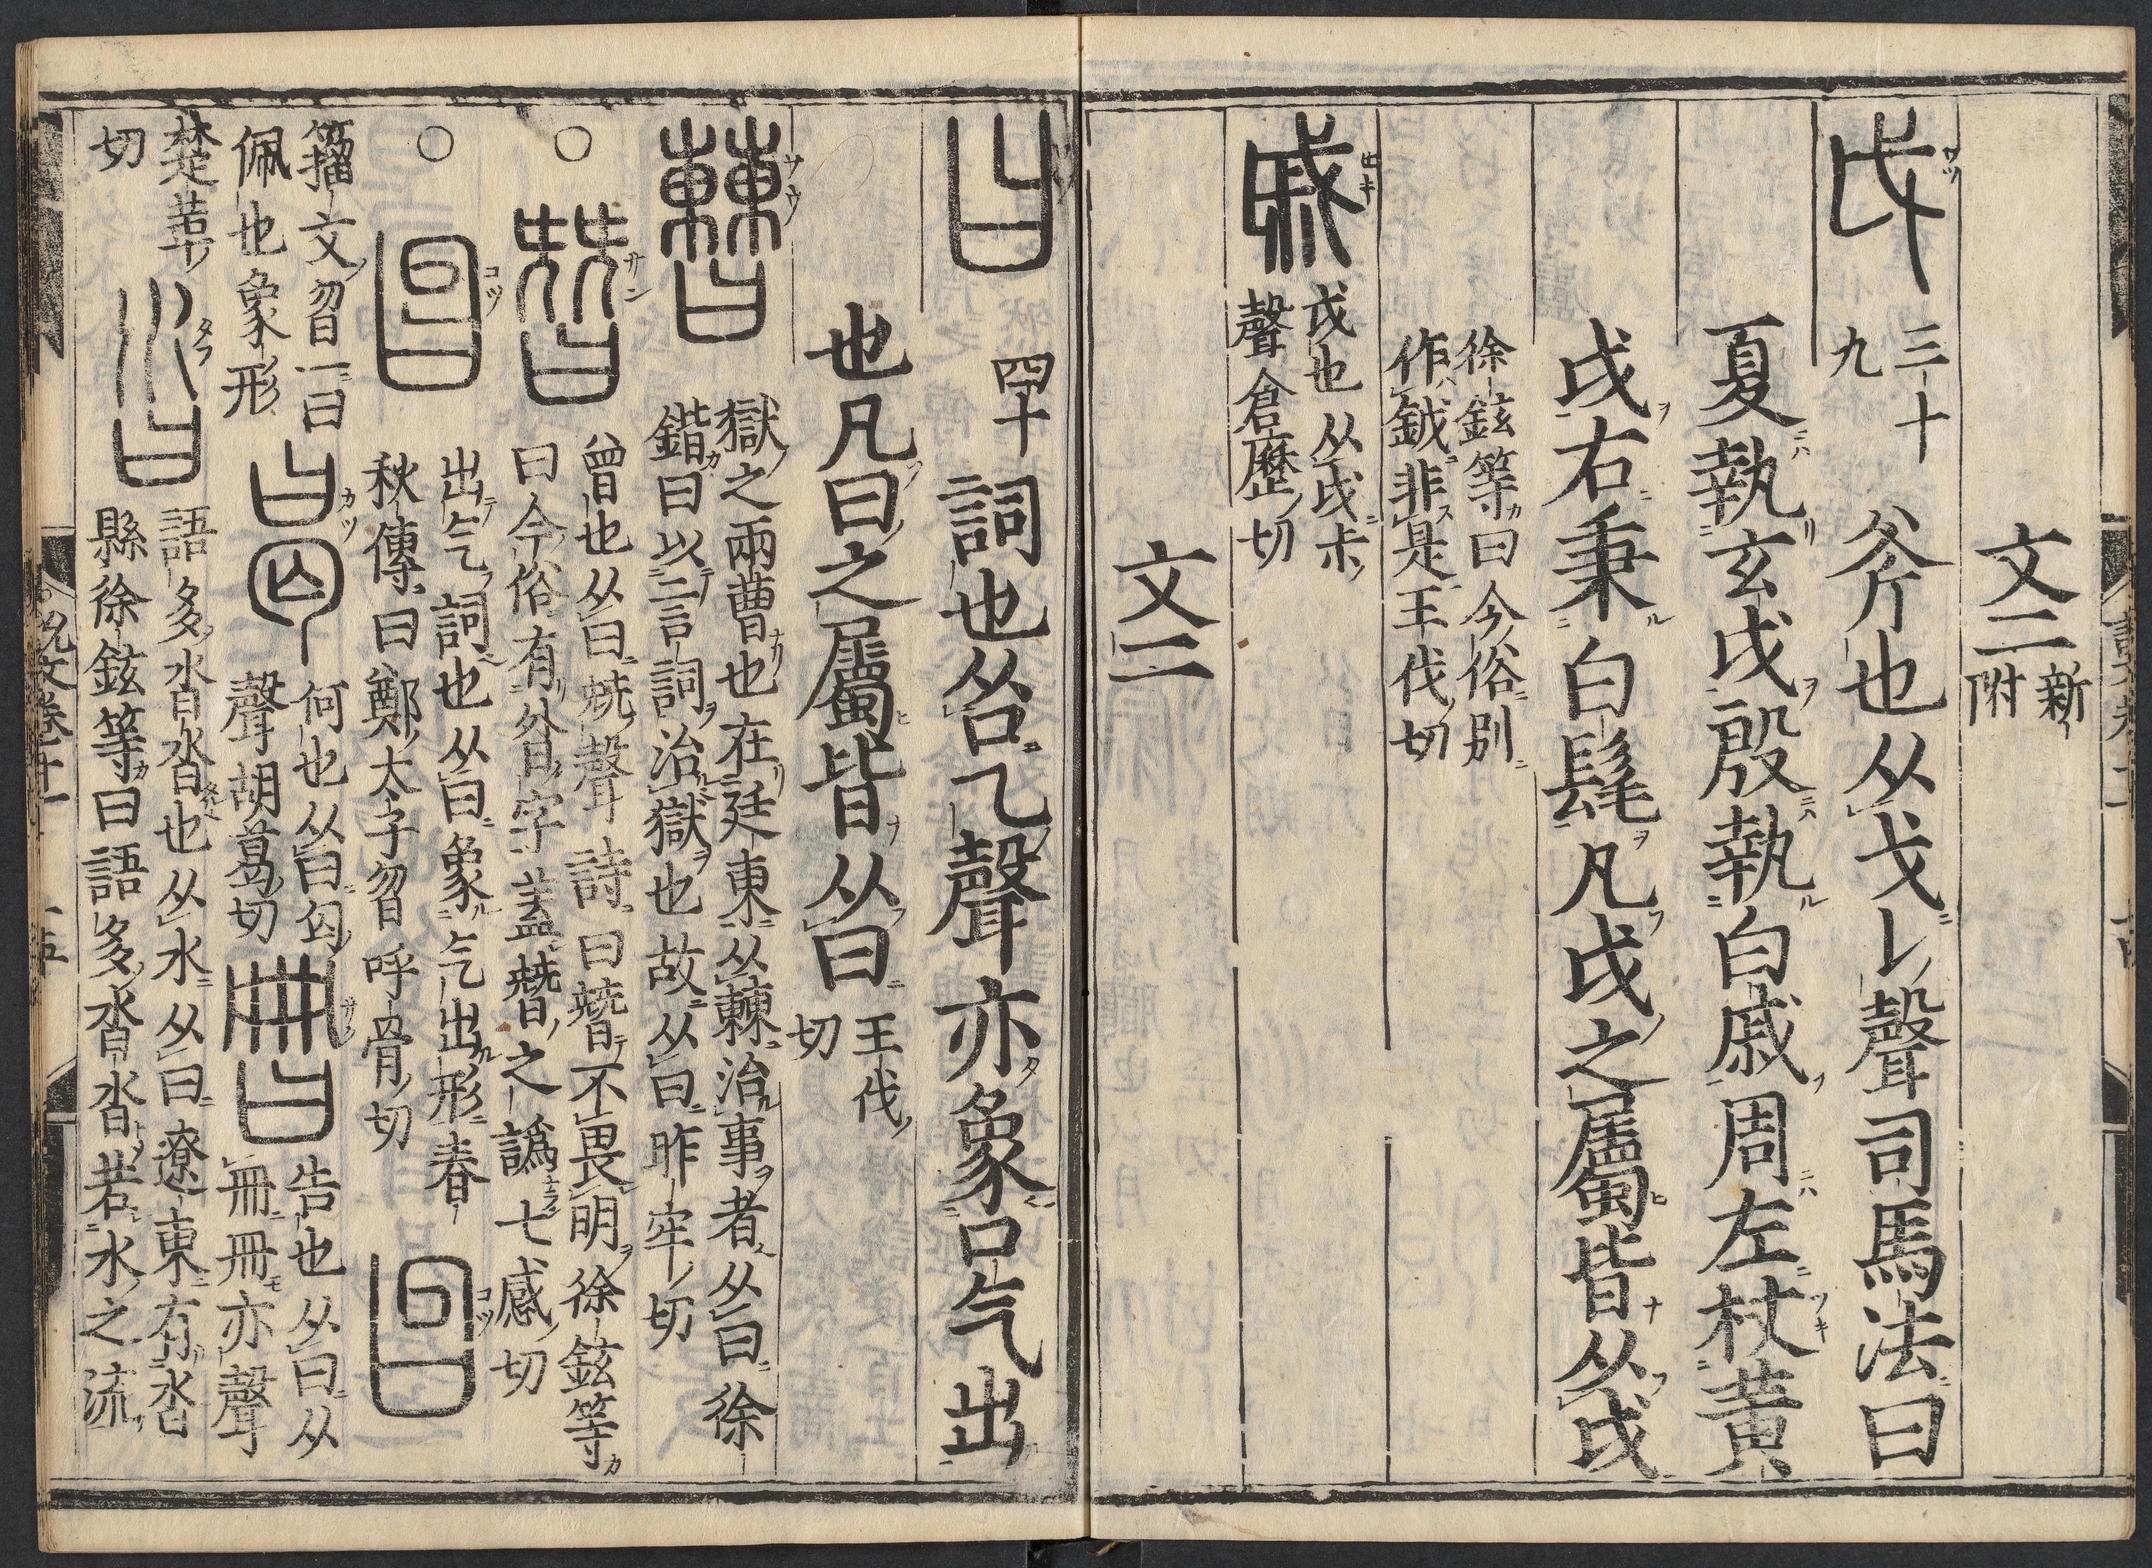 文二新附
戉 三十九 斧也从戈𠄌聲司馬法曰
夏執玄戉殷執白戚周左杖黃
戉右秉白髦凡戉之屬皆从戉
徐鉉等曰今俗別
作鉞非是王伐切
戚 戉也从戉尗
聲倉歷切
文二
曰 四十 詞也从口乙聲亦象口气出
也凡曰之屬皆从曰王伐切
𣍘 獄之兩曹也在廷東从㯥治事者从曰徐
鍇曰以言詞治獄也故从曰昨牢切
○朁 曾也从曰兓聲詩曰朁不畏明徐鉉等
曰今俗有昝字蓋朁之譌七感切
○曶 出气詞也从曰象气出形春
秋傳曰鄭太子曶呼骨切 𠚄
籀文曶一曰
佩也象形 曷 何也从曰匃
聲胡葛切 𠕋 告也从曰从
冊冊亦聲
楚革
切 沓 語多沓沓也从水从曰遼東有沓
縣徐鉉等曰語多沓沓若水之流